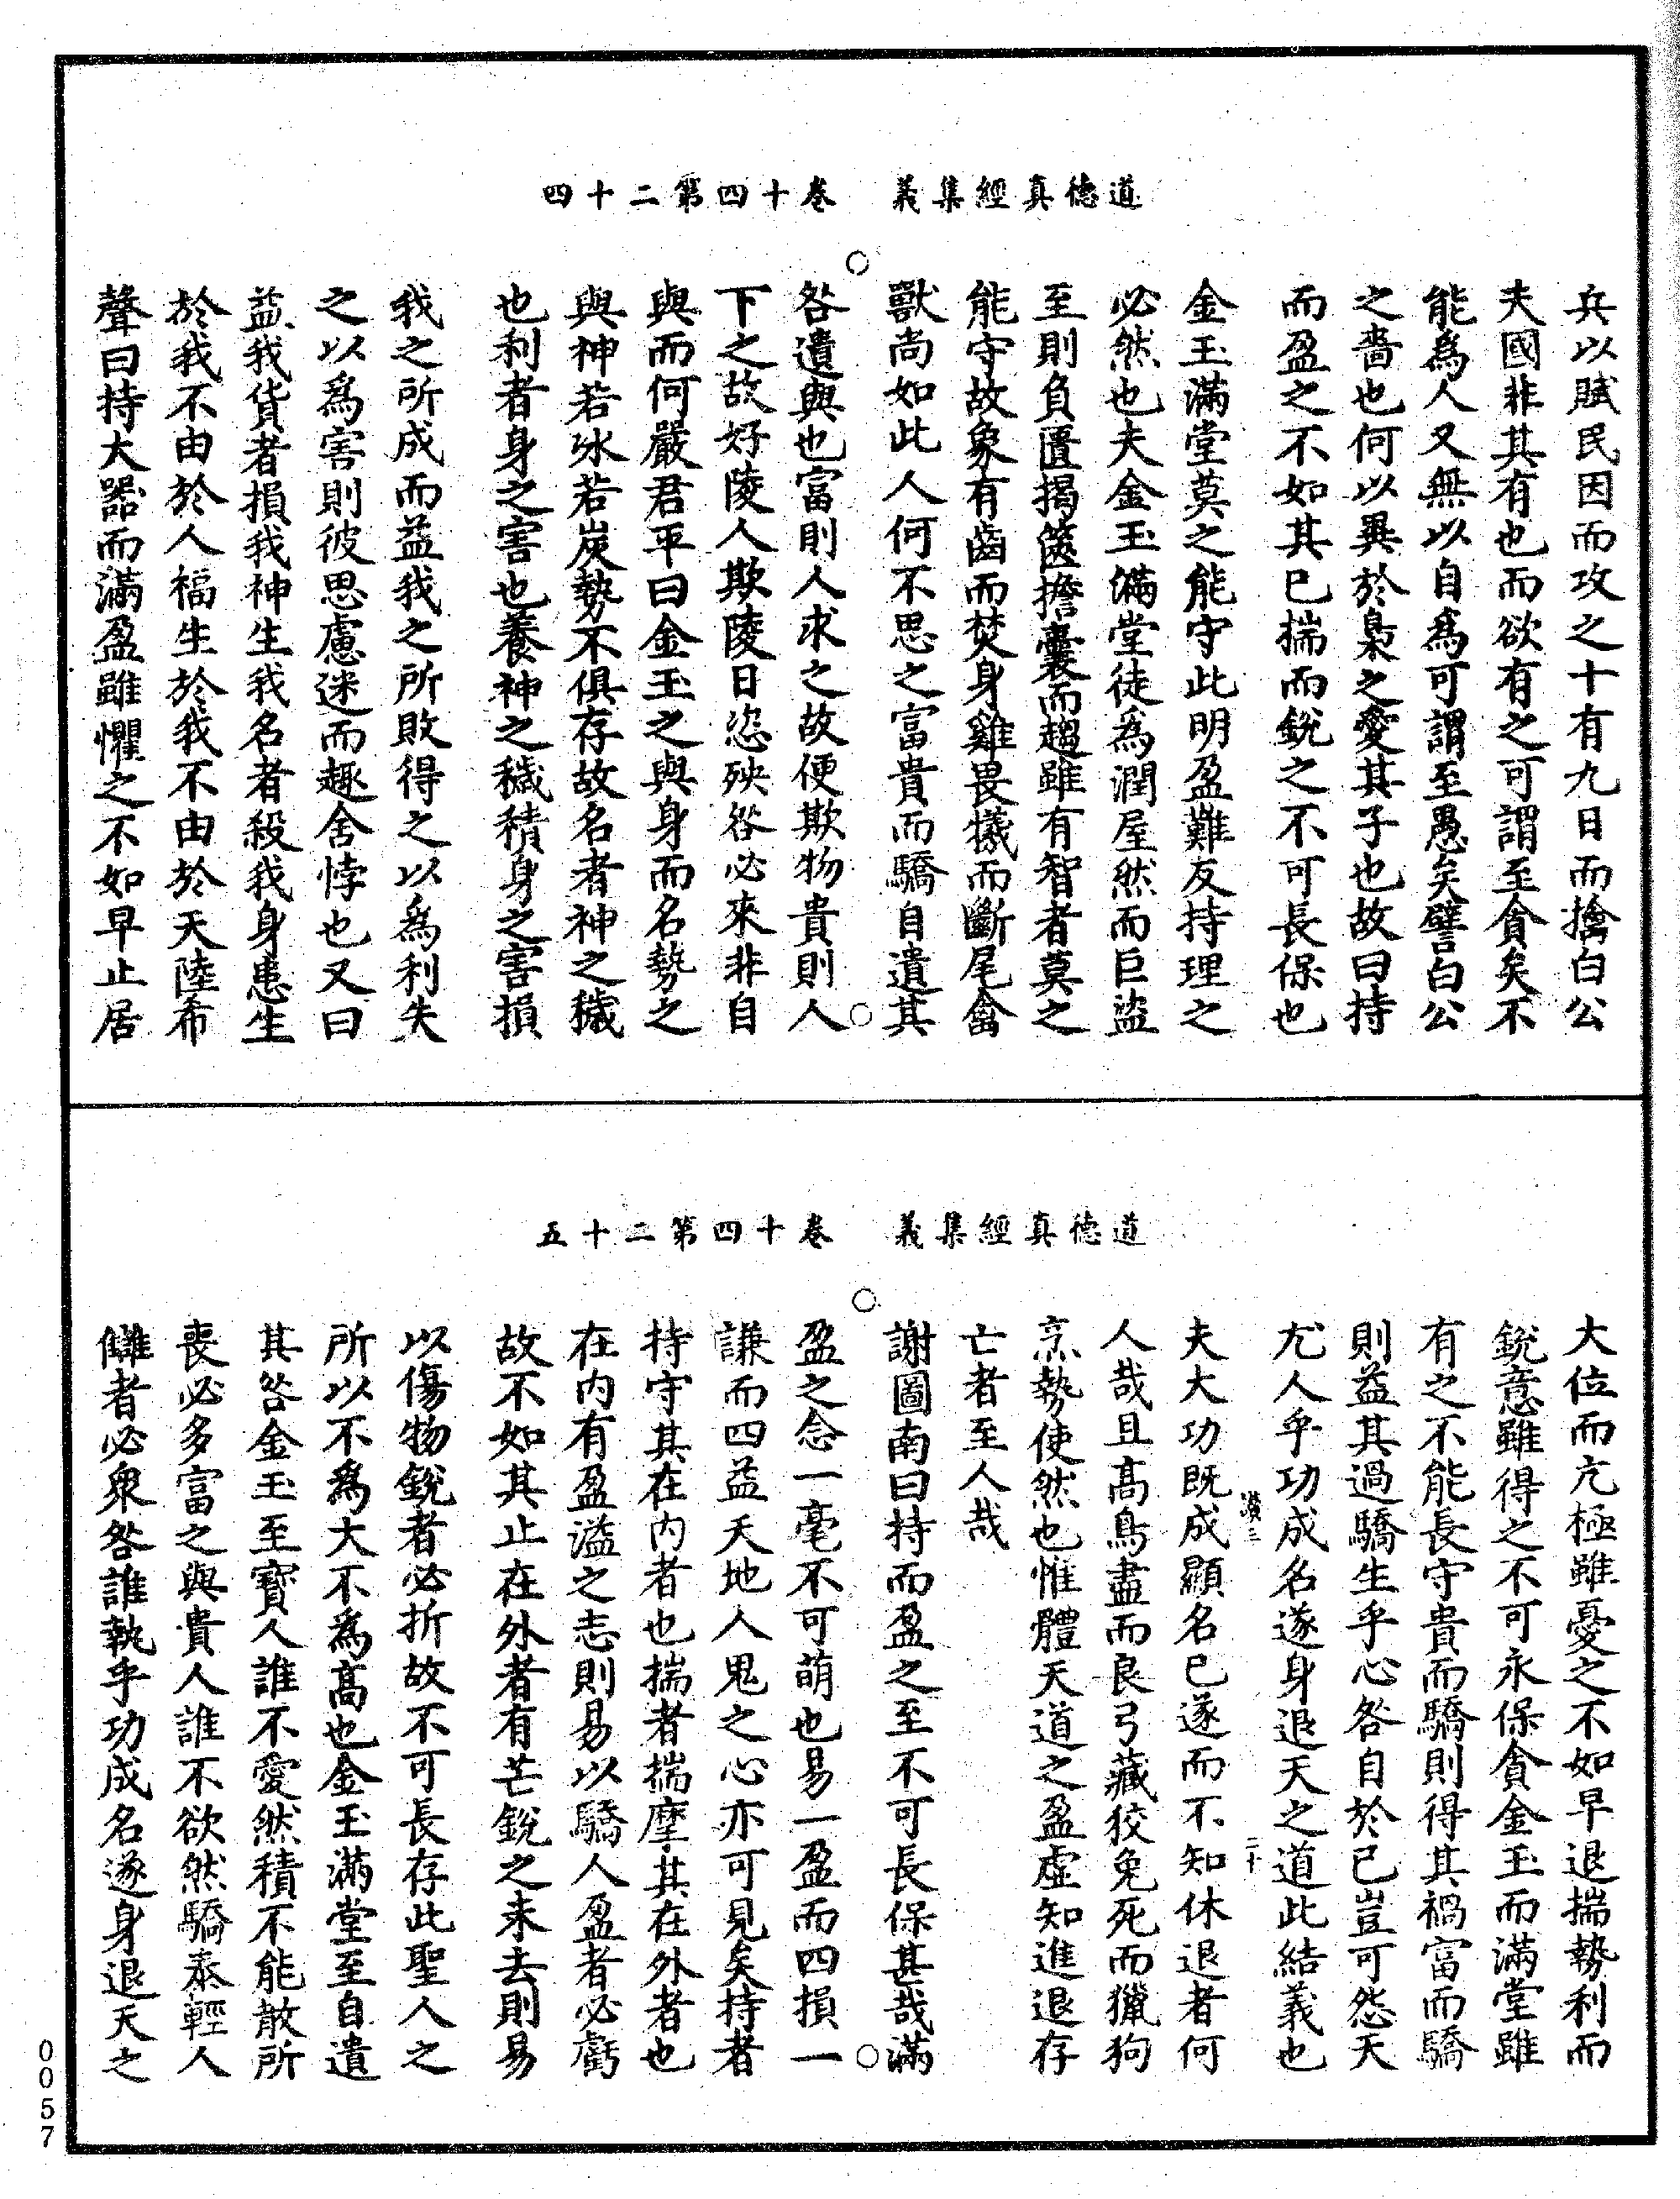 道德真經集義　卷十四第二十四
兵以賦民因而攻之十有九日而擒白公
夫國非其有也而欲有之可謂至貪矣不
能爲人又無以自爲可謂至愚矣譬白公
之嗇也何以異於梟之愛其子也故曰持
而盈之不如其已揣而銳之不可長保也
金玉滿堂莫之能守此明盈難友持理之
必然也夫金玉滿堂徒爲潤屋然而巨盜
至則負匱揭篋擔囊而趨雖有智者莫之
能守故象有齒而焚身雞畏犧而斷尾禽
獸尚如此人何不思之富貴而驕自遺其
咎遺與也富則人求之故便欺物貴則人
下之故好陵人欺陵日恣殃咎必來非自
與而何嚴君平曰金玉之與身而名勢之
與神若冰若炭勢不俱存故名者神之穢
也利者身之害也養神之穢積身之害損
我之所成而益我之所敗得之以爲利失
之以爲害則彼思慮迷而趣舍悖也又曰
益我貨者損我神生我名者殺我身患生
於我不由於人福生於我不由於天陸希
聲曰持大器而滿盈雖懼之不如早止居
道德真經集義　卷十四第二十五
大位而亢極雖憂之不如早退揣勢利而
銳意雖得之不可永保貪金玉而滿堂雖
有之不能長守貴而驕則得其禍富而驕
則益其過驕生乎心咎自於己豈可怨天
尤人乎功成名遂身退天之道此結義也
夫大功既成顯名已遂而不知休退者何
人哉且高鳥盡而良弓藏狡兔死而獵狗
烹勢使然也惟體天道之盈虛知進退存
亡者至人哉
謝圖南曰持而盈之至不可長保甚哉滿
盈之念一毫不可萌也易一盈而四損一
謙而四益天地人鬼之心亦可見矣持者
持守其在內者也揣者揣摩其在外者也
在內有盈溢之志則易以驕人盈者必虧
故不如其止在外者有芒銳之未去則易
以傷物銳者必折故不可長存此聖人之
所以不爲大不爲高也金玉滿堂至自遺
其咎金玉至寶人誰不愛然積不能散所
喪必多富之與貴人誰不欲然驕泰輕人
讎者必衆咎誰執乎功成名遂身退天之
0057